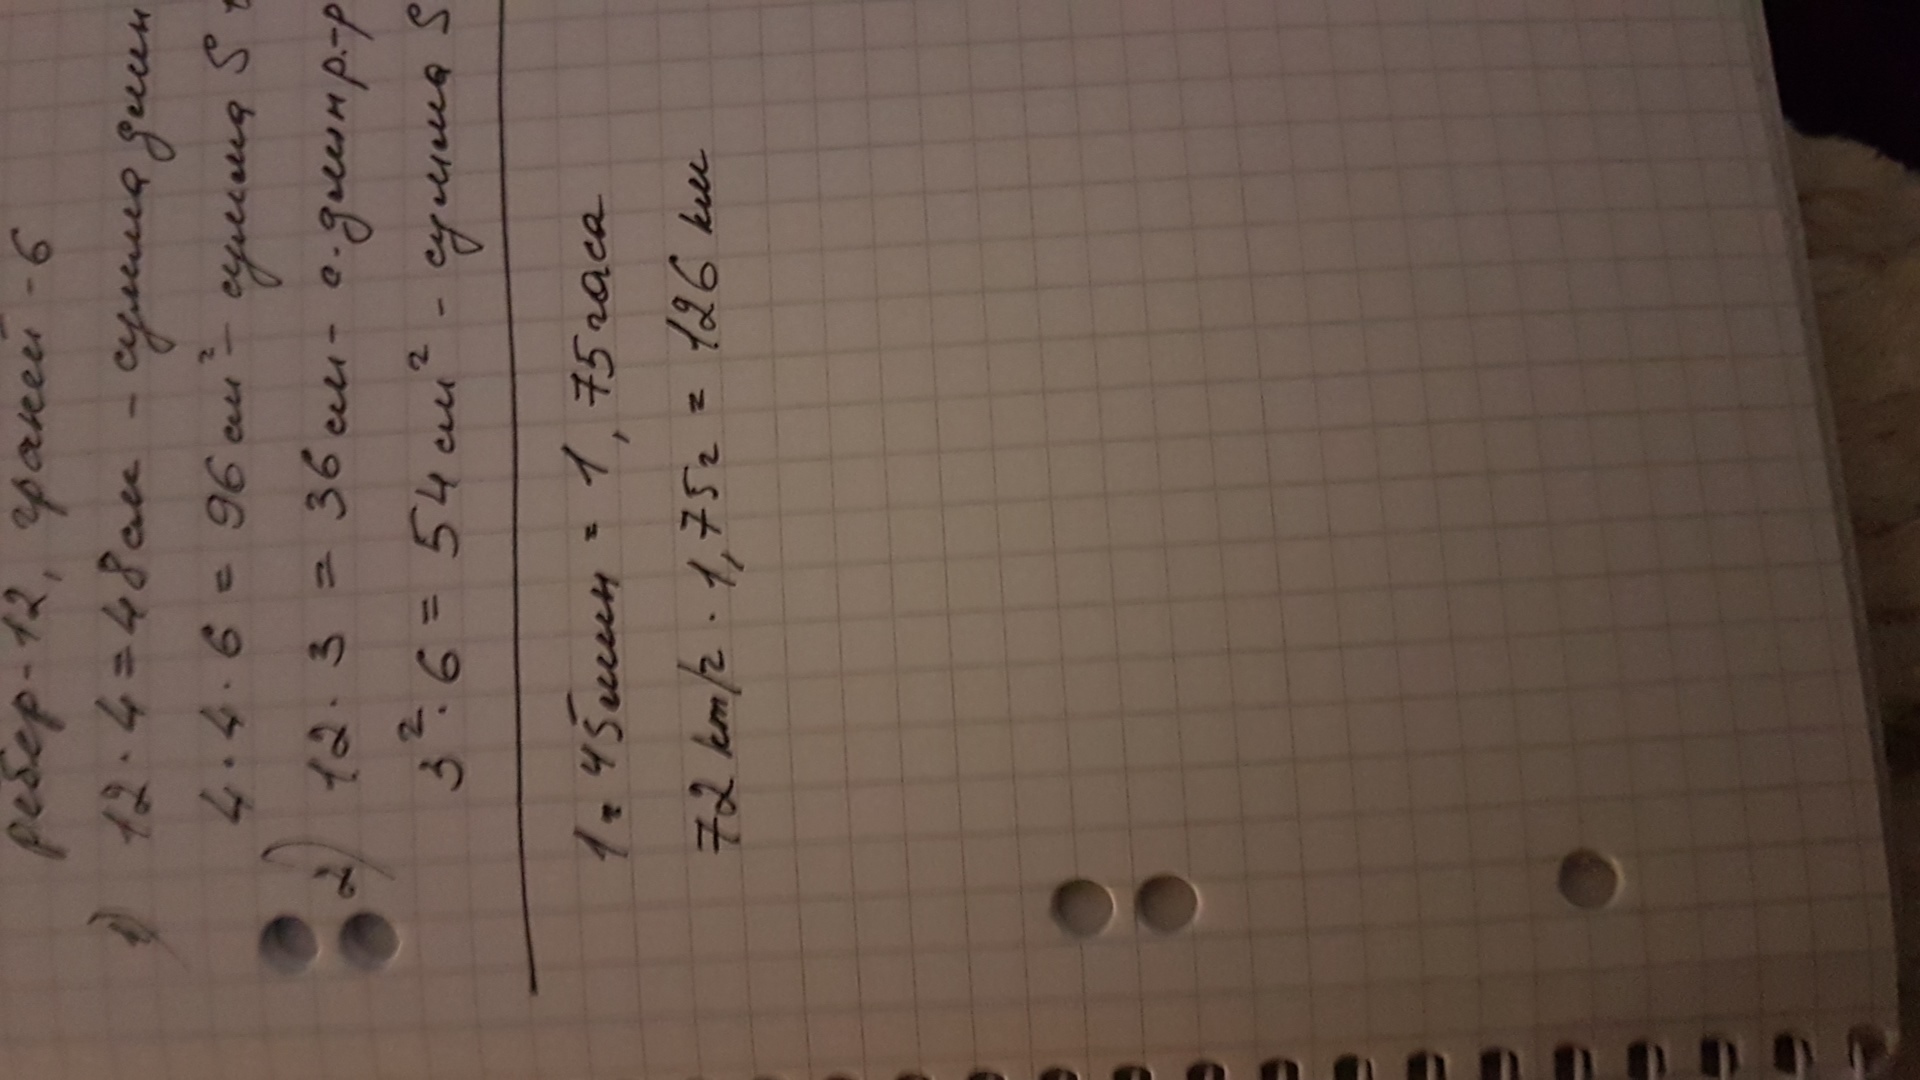 рёбер-12, граней-6
1) 12·4=48см - сумма длин
4·4·6=96см² - сумма S
2) 12·3=36см - с.длин р.-р
3²·6=54см² - сумма S
1ч 45мин = 1,75часа
72km/ч · 1,75ч = 126 км